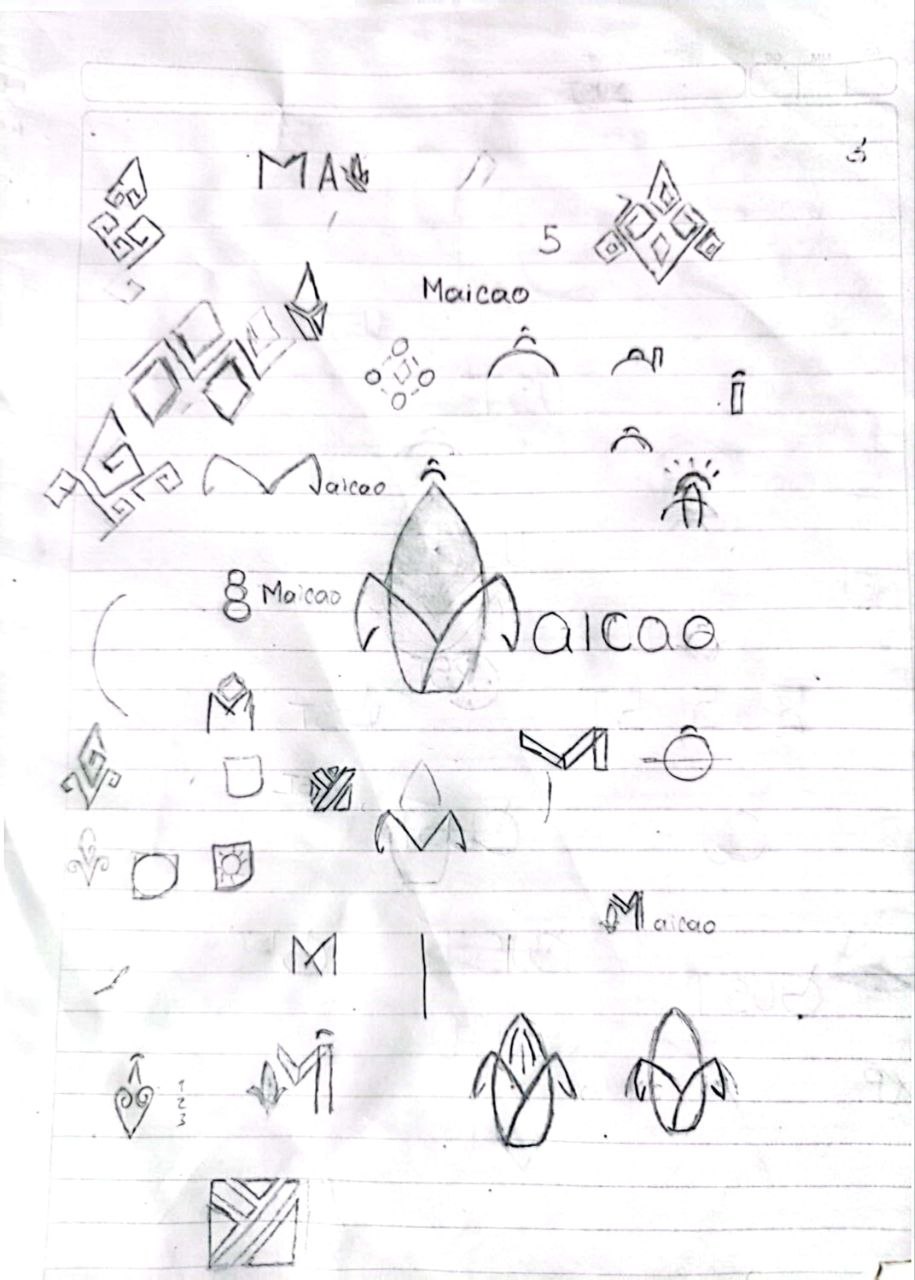 MA
5
Maicao
aicao
Maicao
aicao
M
aicao
M
1
2
3
M